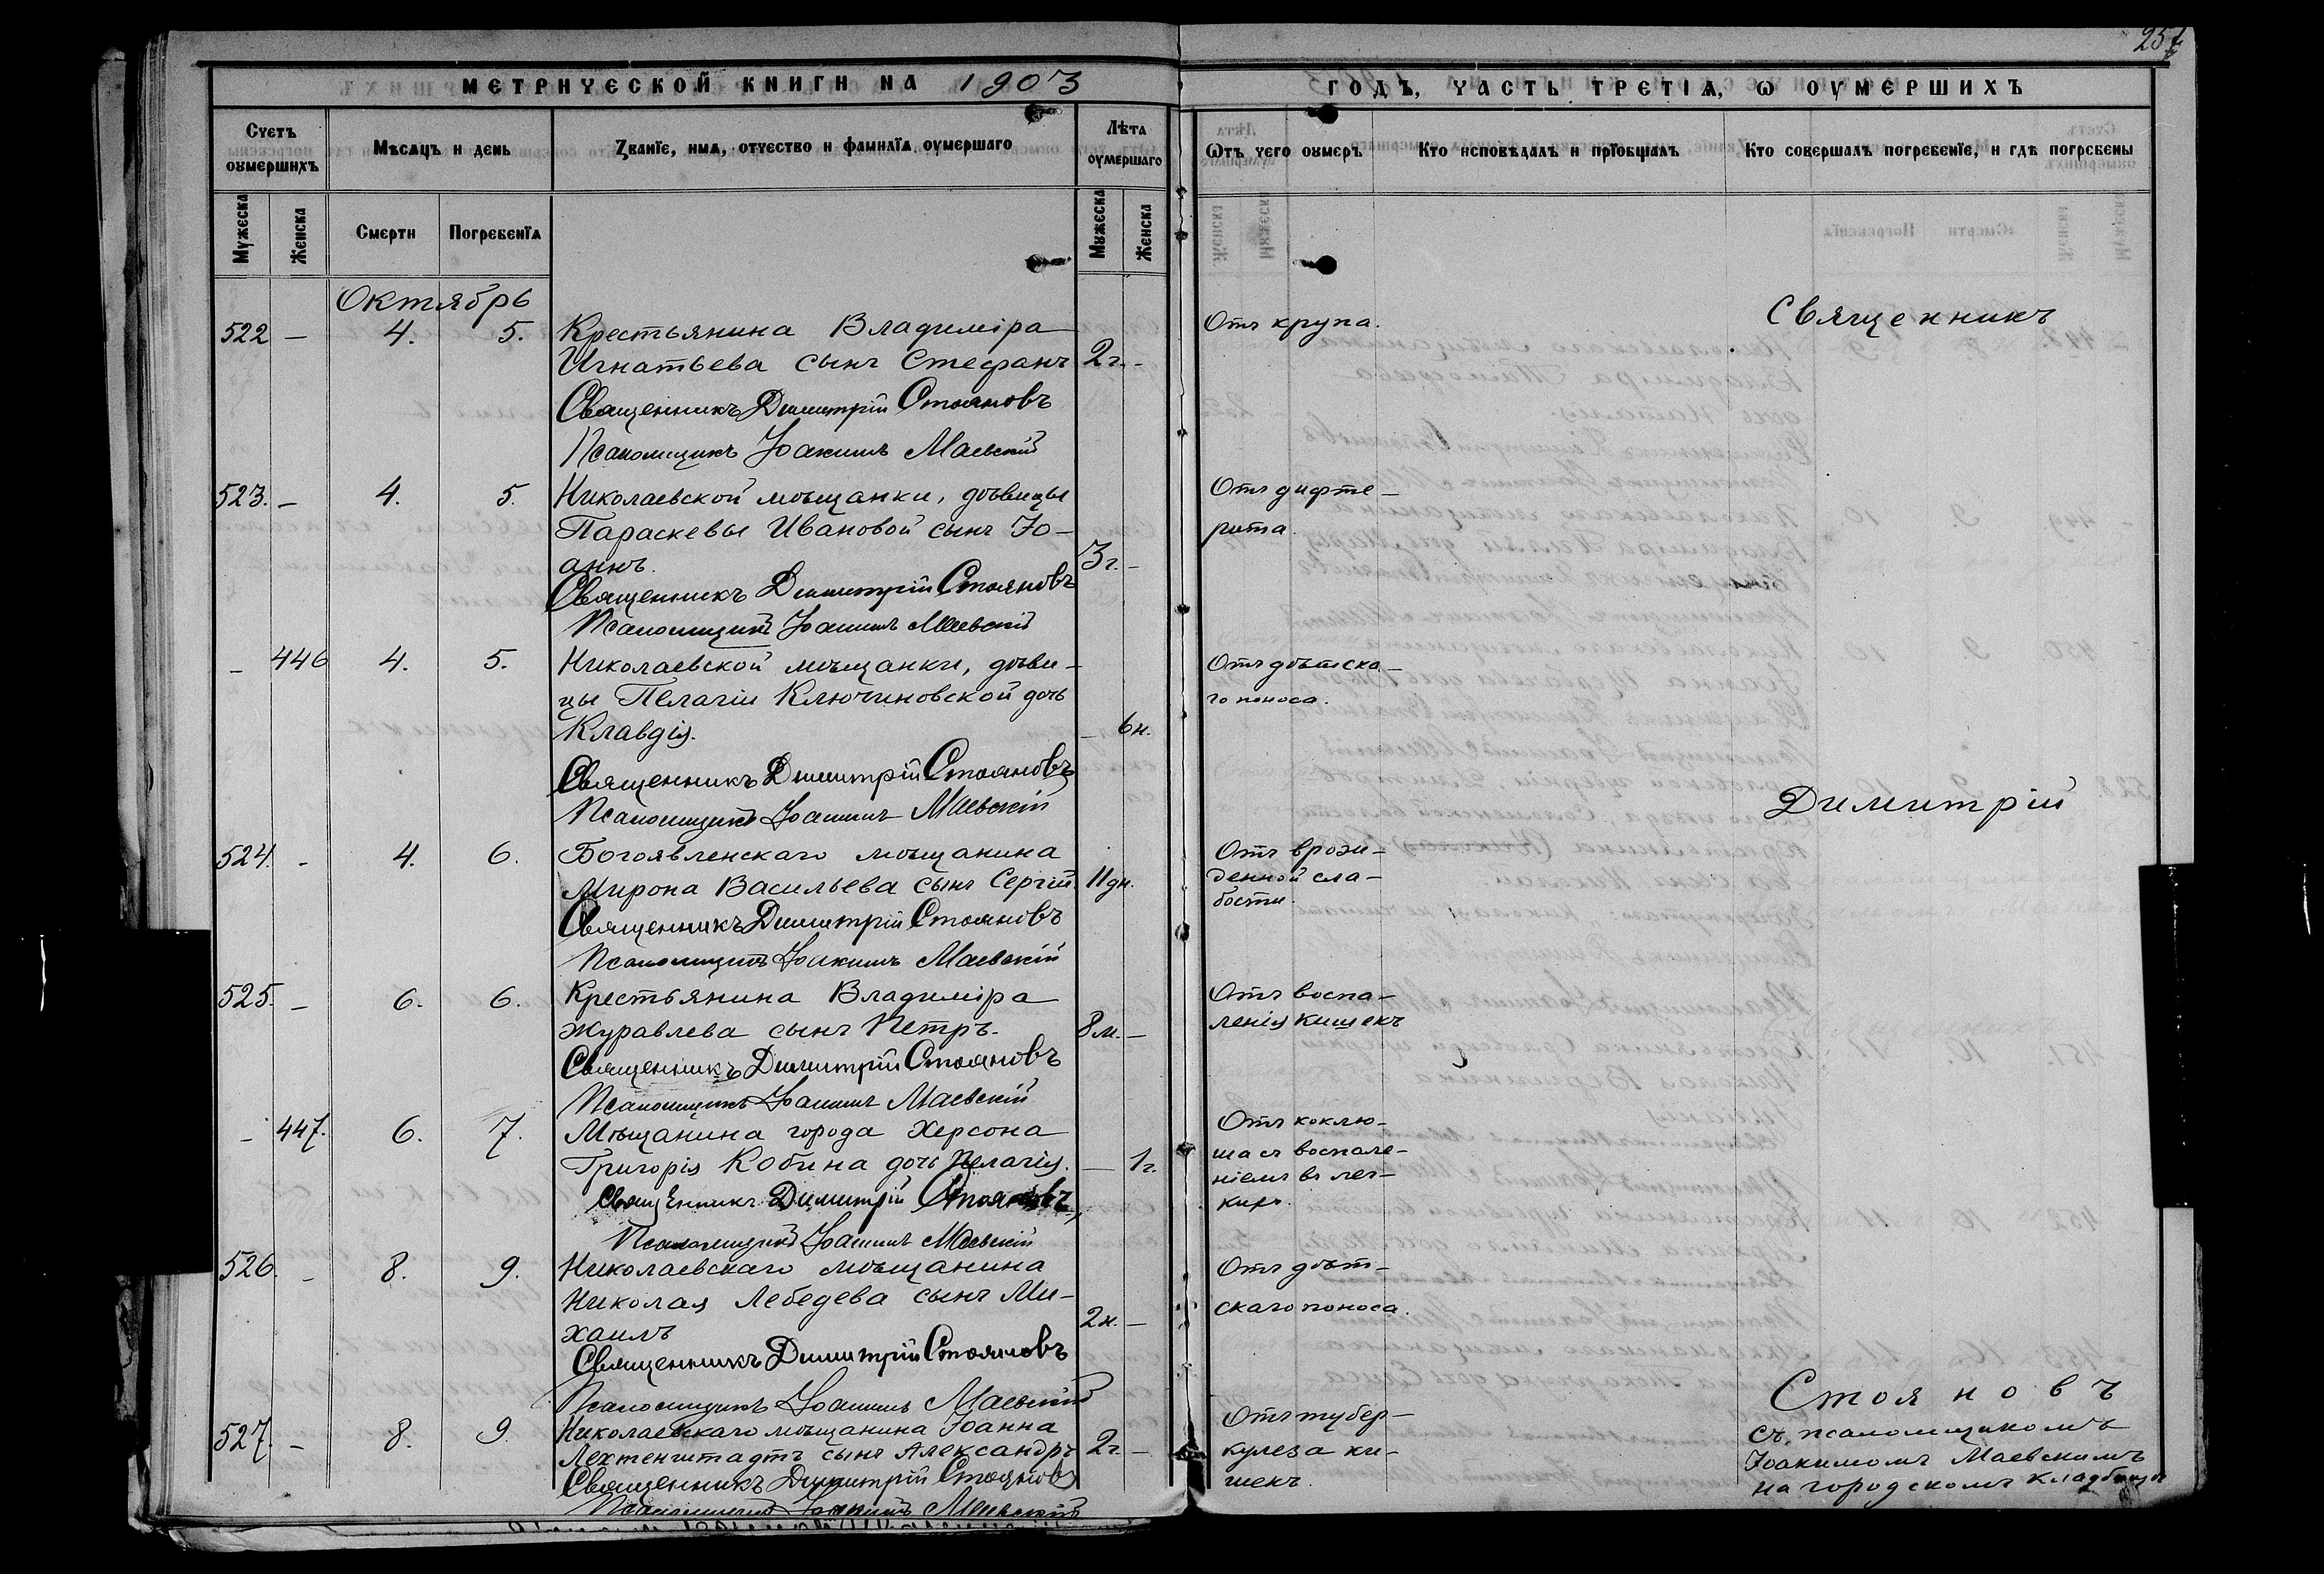 257
МЕТРИЧЕСКОЙ КНИГИ НА 1903
ГОДЪ, ЧАСТЬ ТРЕТІѦ, Ѡ ОУМЕРШИХЪ
Счетъ оумершихъ
Мѣсѧцъ и день
Званїе, имѧ, отчество и фамилїѧ оумершаго
Лѣта оумершаго
Ѿтъ чего оумеръ
Кто исповѣдалъ и прїобщалъ
Кто совершалъ погребенїе, и гдѣ погребены
Мужеска
Женска
Смерти
Погребенїѧ
Мужеска
Женска
Октябрь
522 — 4. 5. Крестьянина Владиміра
Игнатьева сынъ Стефанъ 2г. -
Священникъ Димитрій Стояновъ
Псаломщикъ Іоакимъ Маевскій
Отъ крупа.
Священникъ
523. — 4. 5. Николаевской мѣщанки, дѣвицы
Параскевы Ивановой сынъ Іо-
аннъ. 3г. -
Священникъ Димитрій Стояновъ
Псаломщикъ Іоакимъ Маевскій
Отъ дифте-
рита.
— 446 4. 5. Николаевской мѣщанки, дѣви-
цы Пелагіи Ключиновской дочь
Клавдія. — 6н.
Священникъ Димитрій Стояновъ
Псаломщикъ Іоакимъ Маевскій
Отъ дѣтска-
го поноса.
Димитрій
524. - 4. 6. Богоявленскаго мѣщанина
Мирона Васильева сынъ Сергій. 11дн.
Священникъ Димитрій Стояновъ
Псаломщикъ Іоакимъ Маевскій
Отъ врож-
денной сла-
бости.
525. — 6. 6. Крестьянина Владиміра
Журавлева сынъ Петръ. 8м. —
Священникъ Димитрій Стояновъ
Псаломщикъ Іоакимъ Маевскій
Отъ воспа-
ленія кишекъ
— 447. 6. 7. Мѣщанина города Херсона
Григорія Кобина дочь Пелагія. — 1г.
Священникъ Димитрій Стояновъ
Псаломщикъ Іоакимъ Маевскій
Отъ коклю-
ша съ воспале-
ніемъ въ лег-
кихъ.
526. - 8. 9. Николаевскаго мѣщанина
Николая Лебедева сынъ Ми-
хаилъ 2н. —
Священникъ Димитрій Стояновъ
Псаломщикъ Іоакимъ Маевскій
Отъ дѣт-
скаго поноса.
527. - 8. 9. Николаевскаго мѣщанина Іоанна
Лехтенштадтъ сынъ Александръ 2г. -
Священникъ Димитрій Стояновъ
Псаломщикъ Іоакимъ Маевскій
Отъ тубер-
кулеза ки-
шекъ.
Стояновъ
съ псаломщикомъ
Іоакимомъ Маевскимъ
на городскомъ кладбищѣ